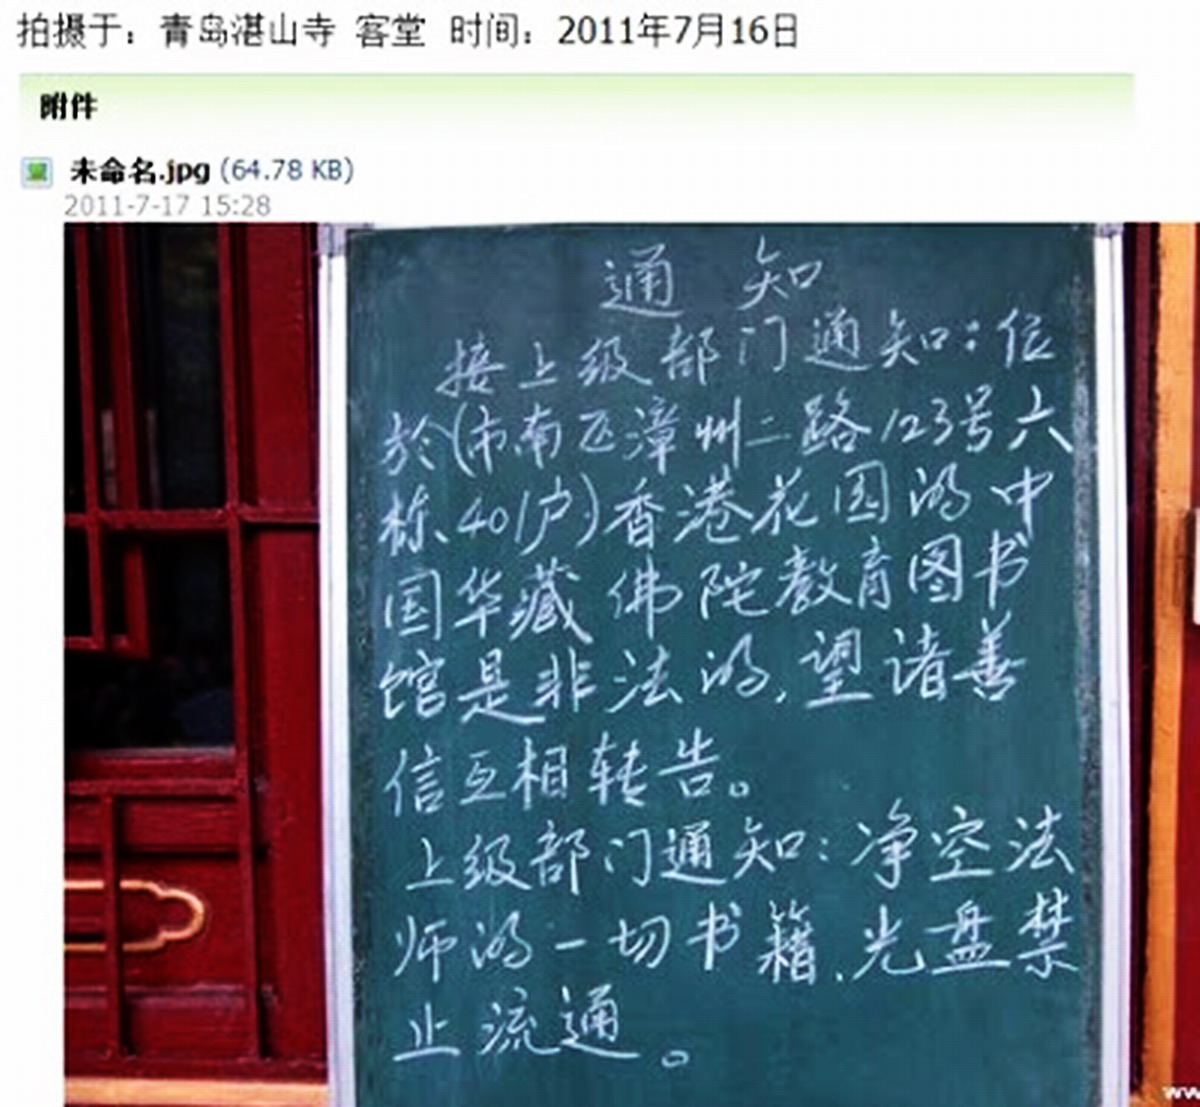 拍摄于：青岛湛山寺 客堂 时间：2011年7月16日
附件
未命名.jpg (64.78 KB)
2011-7-17 15:28
通 知
接上级部门通知：位
於（市南区漳州二路123号六
栋、401户）香港花园的中
国华藏佛陀教育图书
馆是非法的，望诸善
信互相转告。
上级部门通知：净空法
师的一切书籍，光盘禁
止流通。